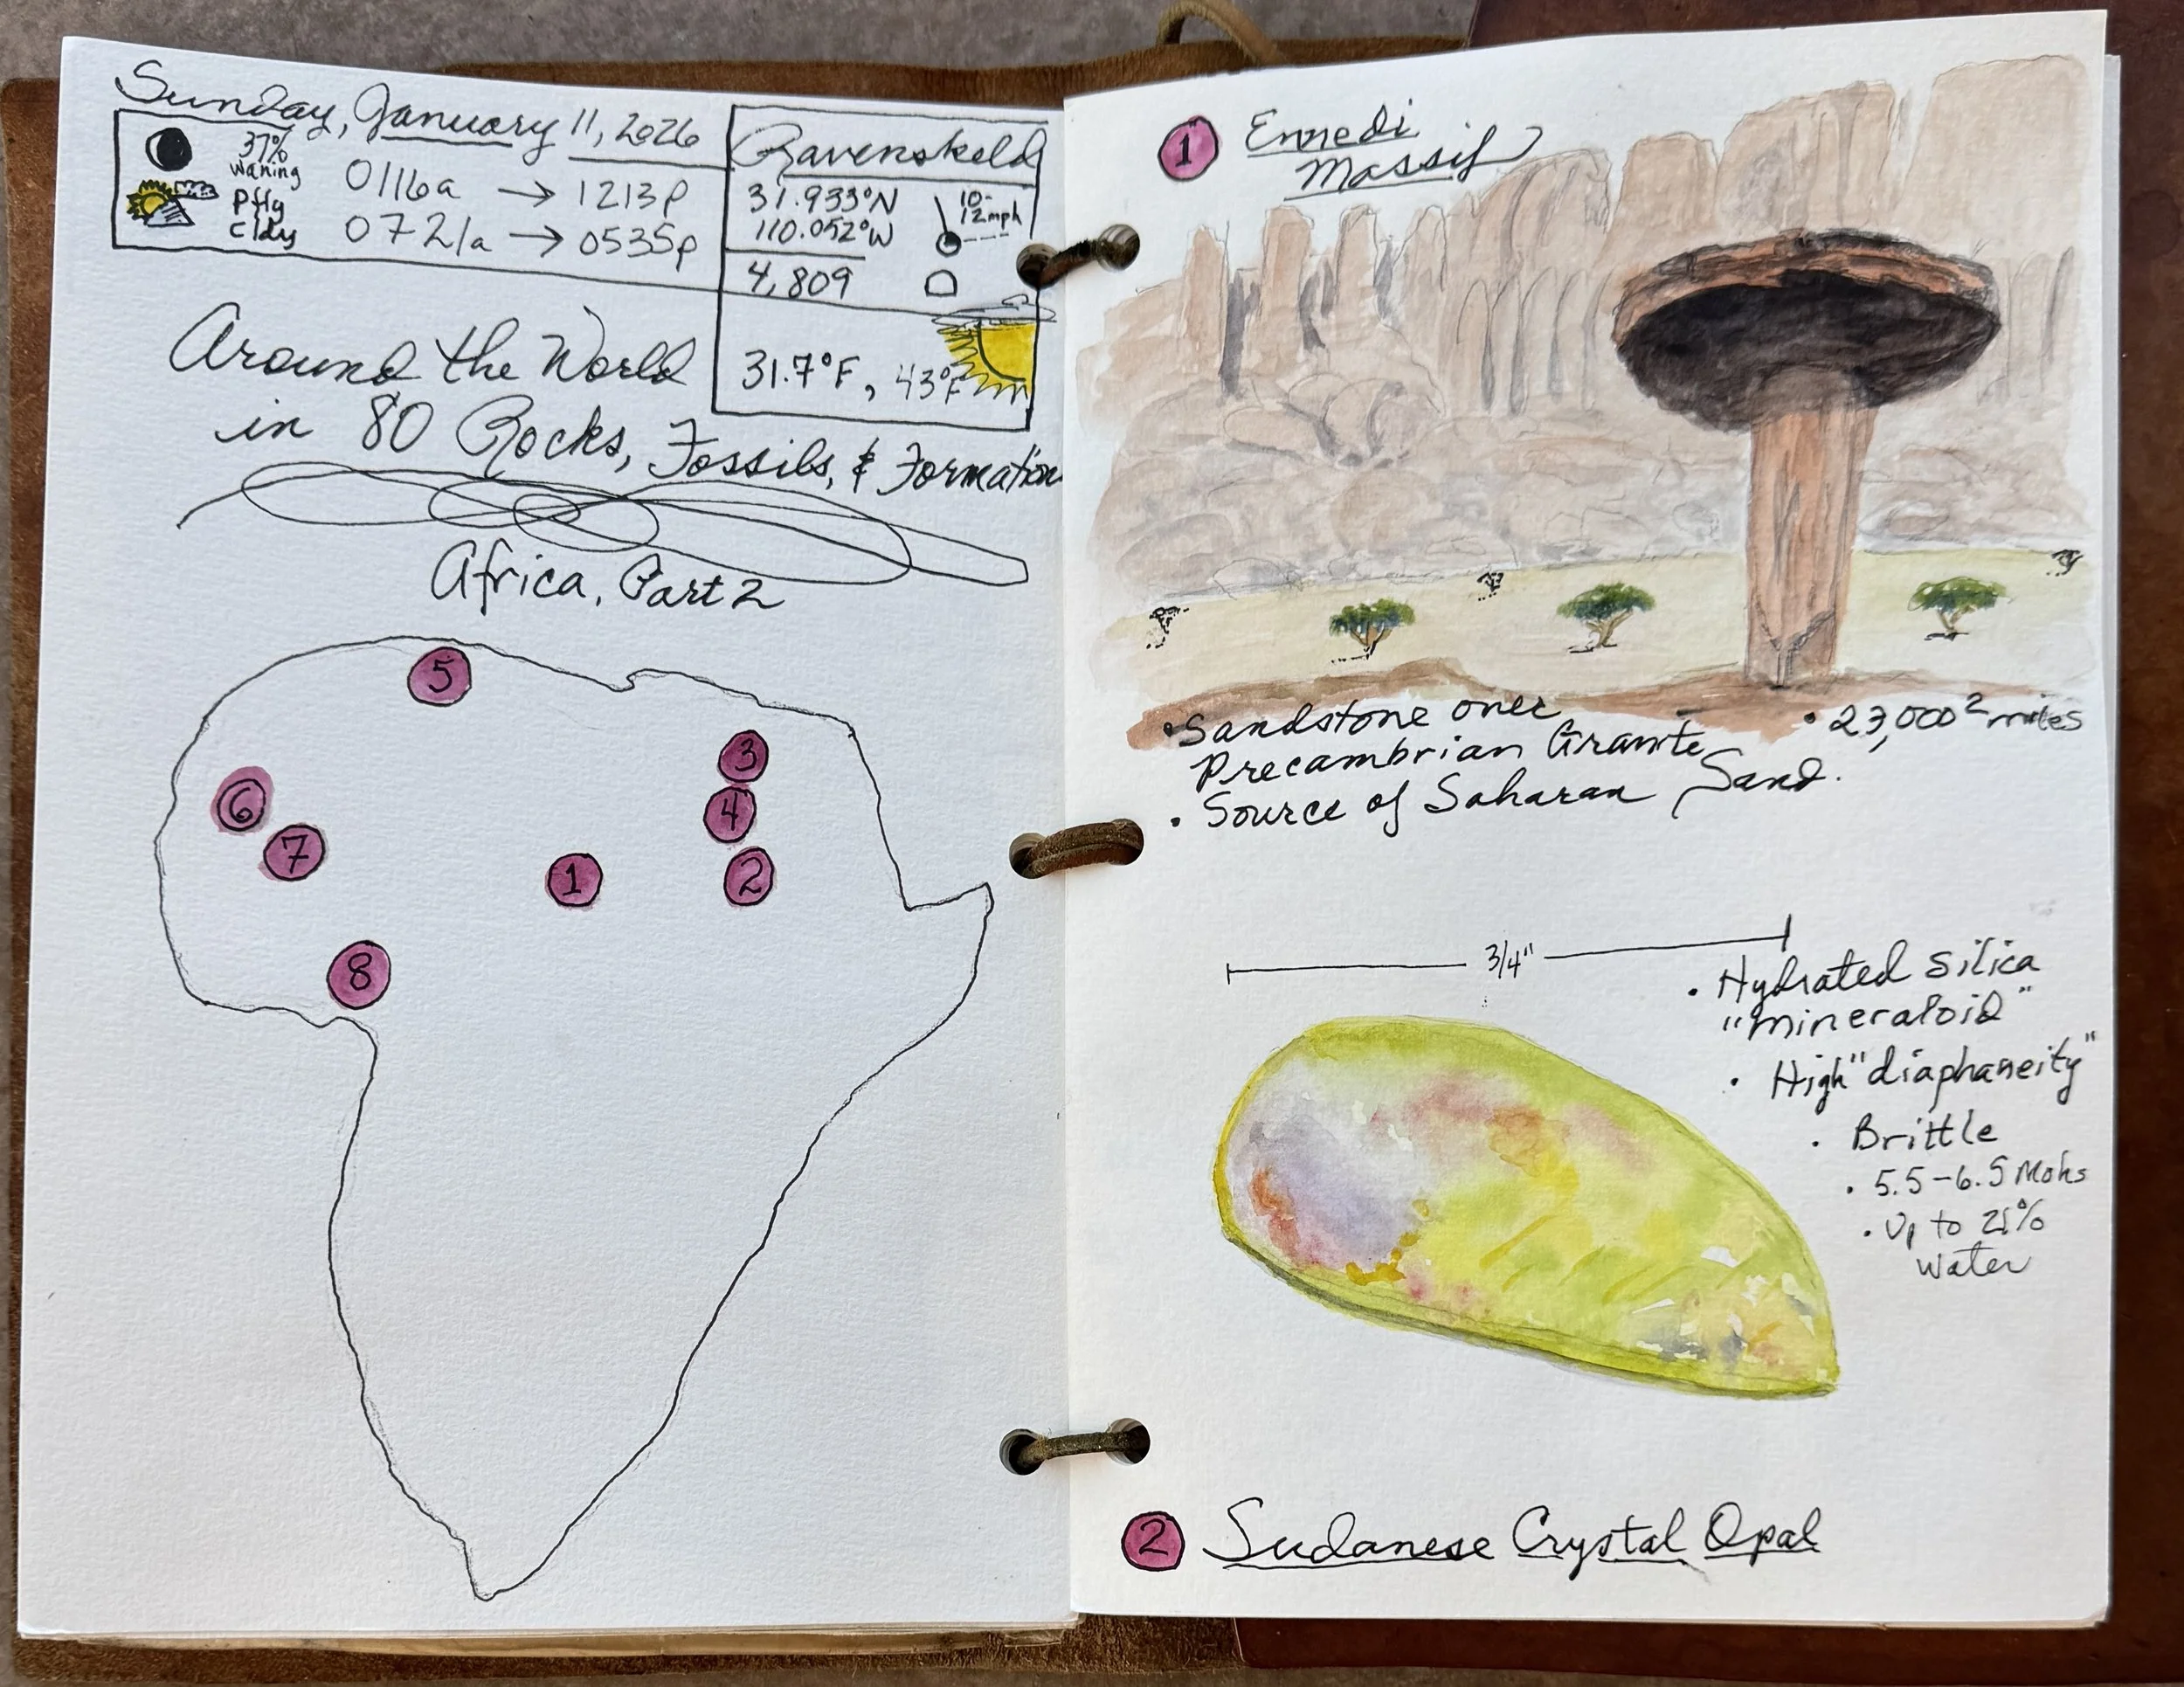 Sunday, January 11, 2026
37%
waning
0116a → 1213p
ptly
cldy
0721a → 0535p
Ravenskeld
31.933°N
110.052°W
10-
12mph
4,809
31.7°F, 43°F
Around the World
in 80 Rocks, Fossils, & Formation
Africa, Part 2
5
3
6
4
7
1
2
8
1 Ennedi
Massif
• Sandstone over
Precambrian Granite
• Source of Saharan Sand.
• 23,000² miles
3/4"
• Hydrated silica
"mineraloid"
• High "diaphaneity"
• Brittle
• 5.5-6.5 Mohs
• Up to 21%
water
2 Sudanese Crystal Opal